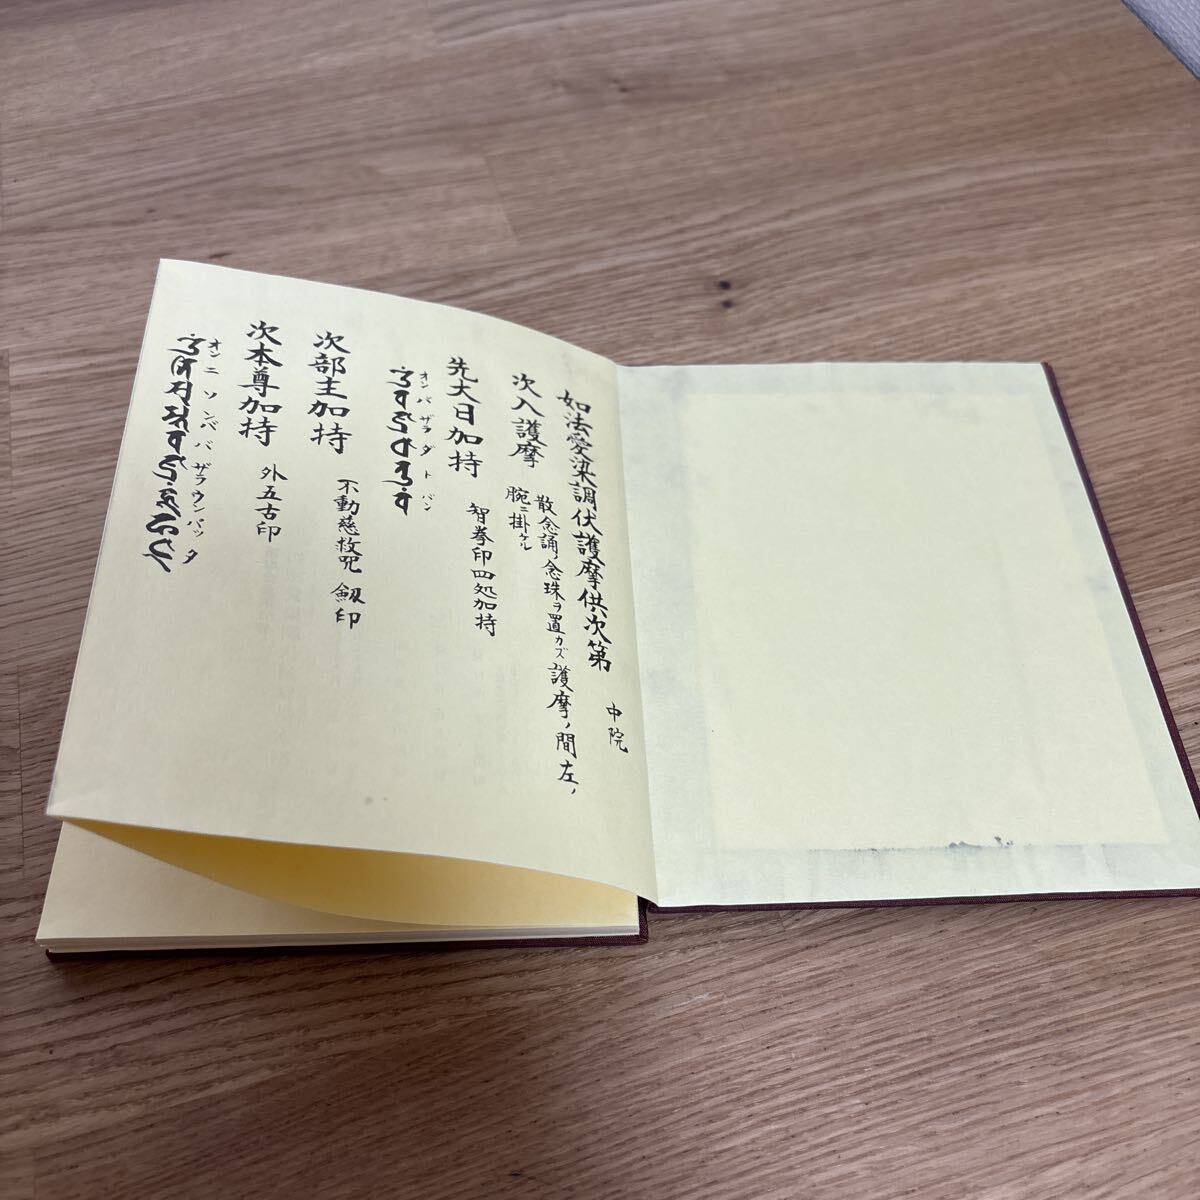 如法愛染調伏護摩供次第　中院
次入護摩　散念誦ノ念珠ヲ置カズ護摩ノ間左ノ
腕ニ掛ケル
先大日加持　智拳印四処加持
オンバザラダトバン
次部主加持　不動慈救咒　劔印
次本尊加持　外五古印
オンニソンババザラウンハッタ